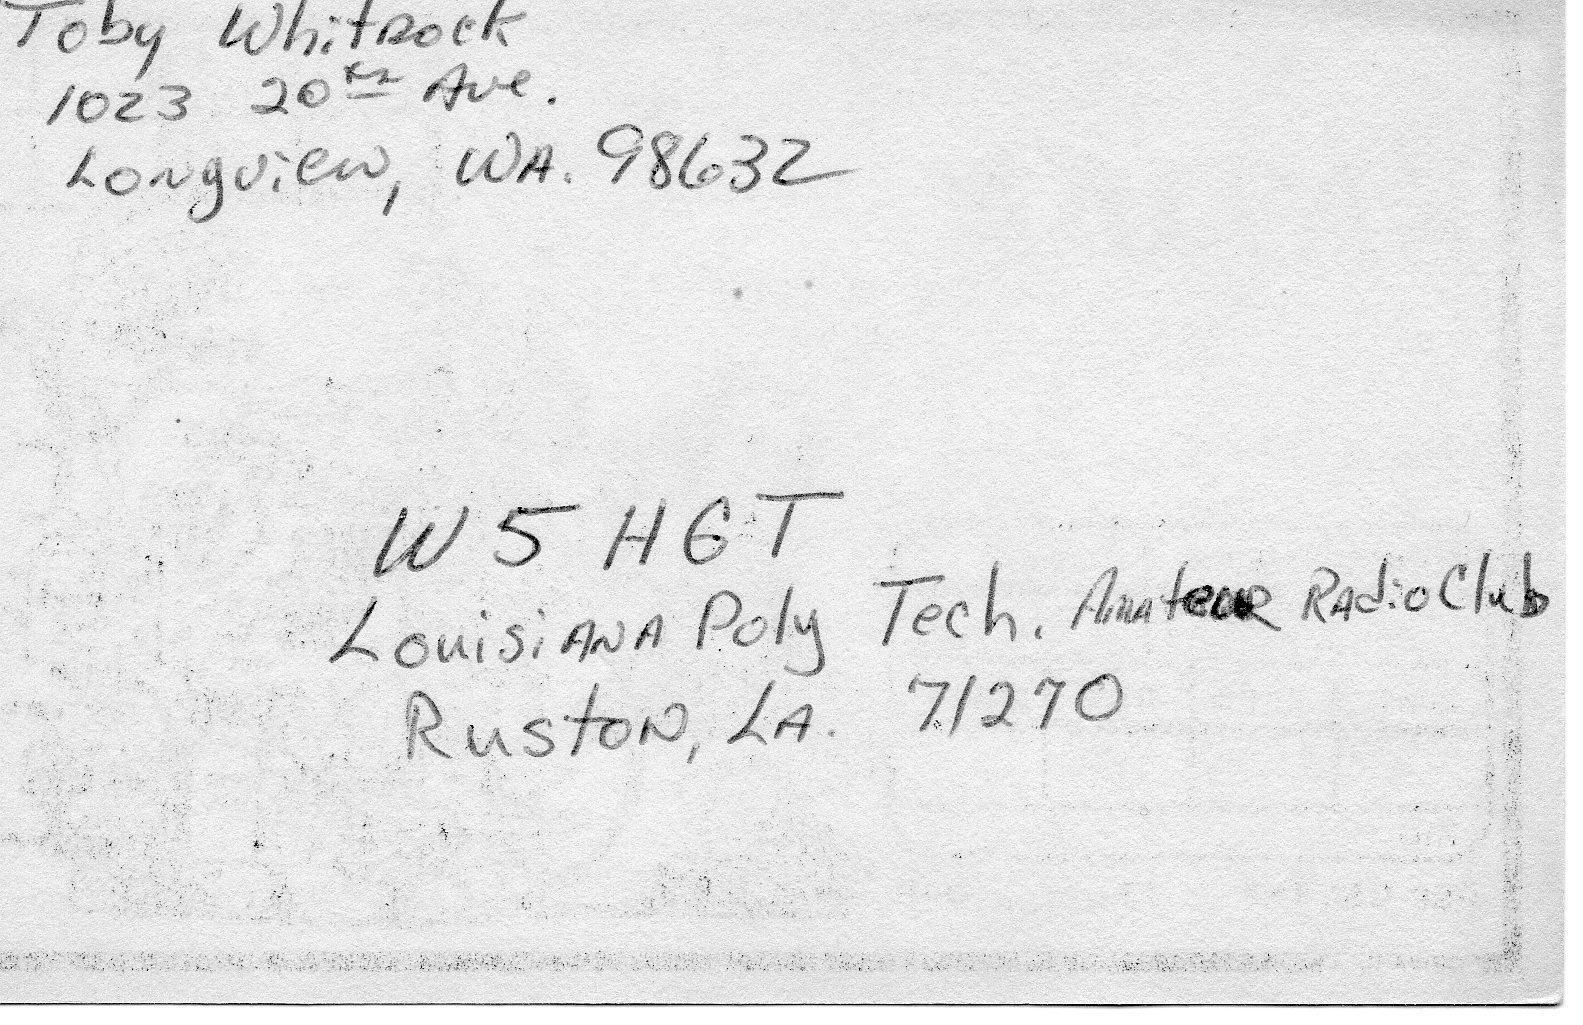 Toby Whitrock
1023 20th Ave.
Longview, WA. 98632
W 5 H G T
Louisiana Poly Tech. Amateur Radio Club
Ruston, LA. 71270